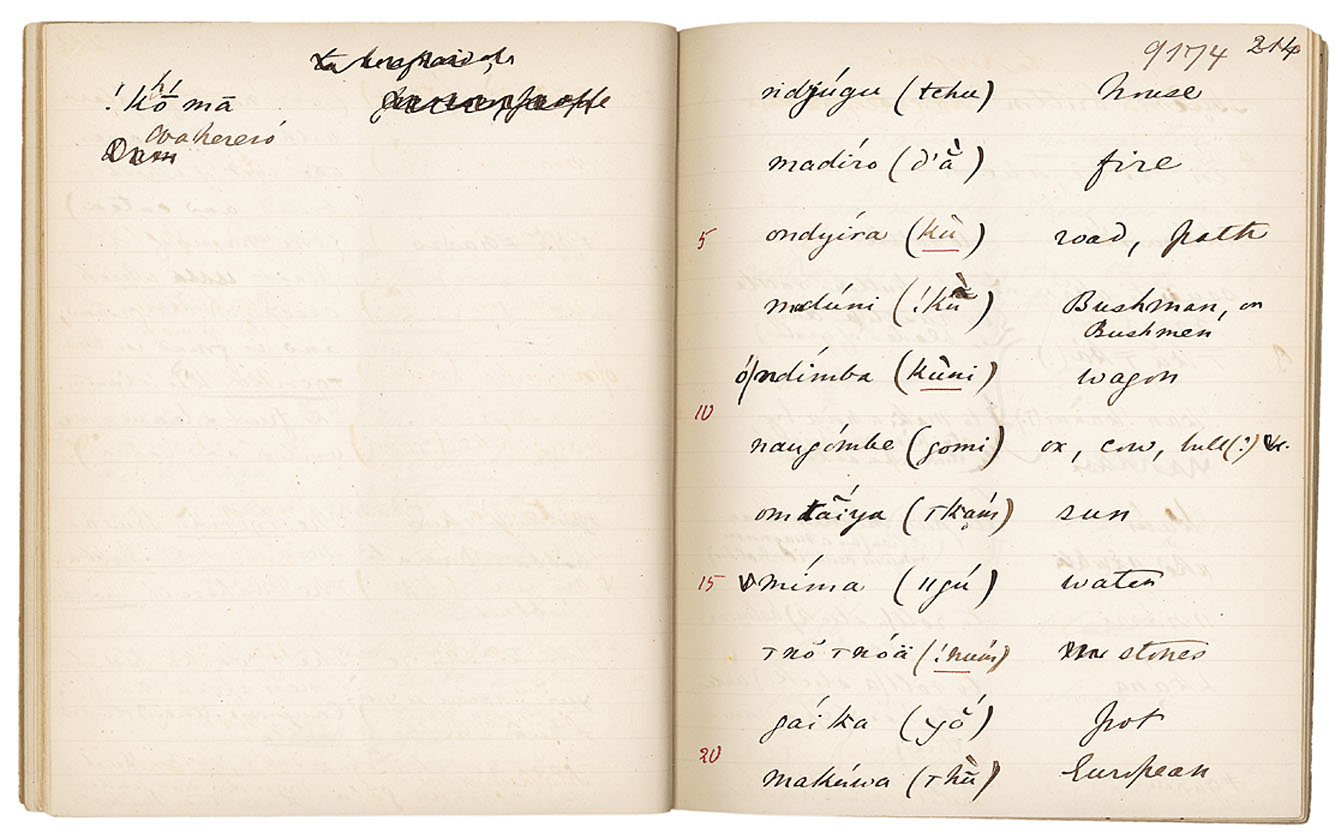 !kṓmā
hí
Ovahereró
9174 214
ridyúgu (tchu) house
madíro (d'ằ) fire
5
ondyíra (kù) road, path
mdúni (!kǜ) Bushman, or
Bushmen
ó/ndímba (kùni) wagon
10
naugómbe (gomi) ox, cow, bull(?) &c.
omtā́íya (ꞇkaṃ́) sun
15
míma (ǁgú) water
ꞇnŏ ꞇnóä (!nuṃ́) stones
gáíka (yŏ́) pot
20
makúwa (ꞇhǜ) European